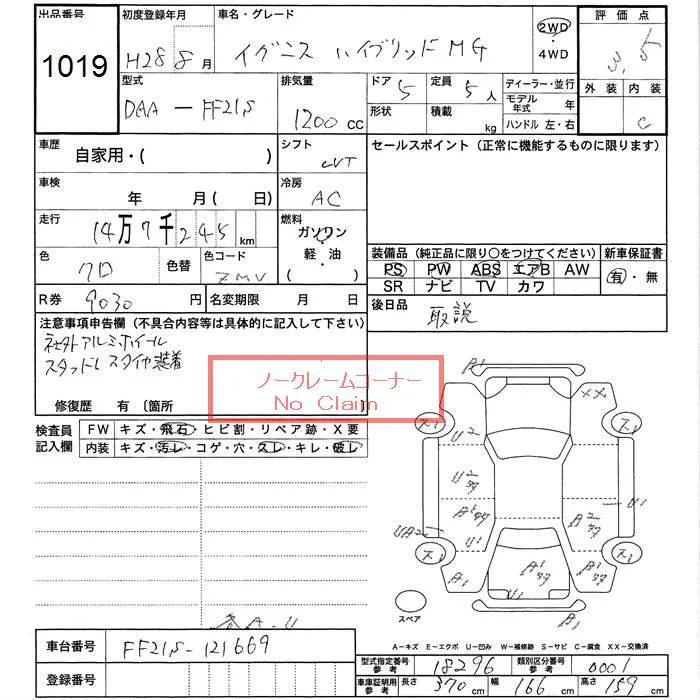 出品番号 初度登録年月 車名・グレード 評価点
1019 H28 8月 イグニス ハイブリッド MG 2WD・4WD 3.5
型式 排気量 ドア 定員 ディーラー・並行 外装 内装
DAA-FF21S 1200cc 5 5人 モデル年式 年 C
形状 積載 kg ハンドル 左・右
車歴 自家用・( ) シフト CVT セールスポイント(正常に機能するものに限ります)
車検 年 月( 日) 冷房 AC
走行 14万7千245km 燃料 ガソリン 軽・油 ( )
色 クロ 色替 色コード ZMV
装備品(純正品に限り〇をつけてください) 新車保証書
PS PW ABS エアB AW 有・無
SR ナビ TV カワ
R券 9030円 名変期限 月 日 後日品 取説
注意事項申告欄(不具合内容等は具体的に記入して下さい)
社外アルミホイール
スタッドレスタイヤ装着
ノークレームコーナー
No Claim
修復歴 有〔箇所 〕
検査員記入欄 FW キズ・飛石・ヒビ割・リペア跡・X要
内装 キズ・汚レ・コゲ・穴・スレ・キレ・破レ
B1
XX
ス1 ス1
U2
U2
U1
UA2
U1
ス1 ス1
A1 A1
B1
スペア
A-キズ E-エクボ U-凹み W-補修跡 S-サビ C-腐食 XX-交換済
車台番号 FF21S-121669
型式指定番号 参考 18296 類別区分番号 参考 0001
登録番号 車庫証明用 参考 長さ 370cm 幅 166cm 高さ 159cm